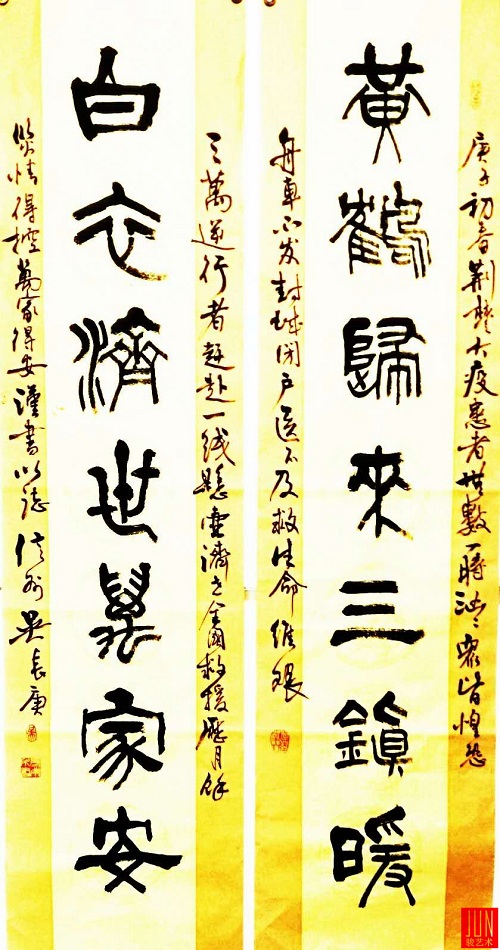 庚子初春荆楚大疫患者無數一時汹汹眾皆惶恐
黃鶴歸來三鎮暖
舟車不发封城闭户医不及救生命維艱
三萬逆行者赶赴一线懸壺濟世全國救援歷月餘
白衣濟世萬家安
疫情得控萬家得安謹書以誌信州吴長庚
JUN
骏艺术